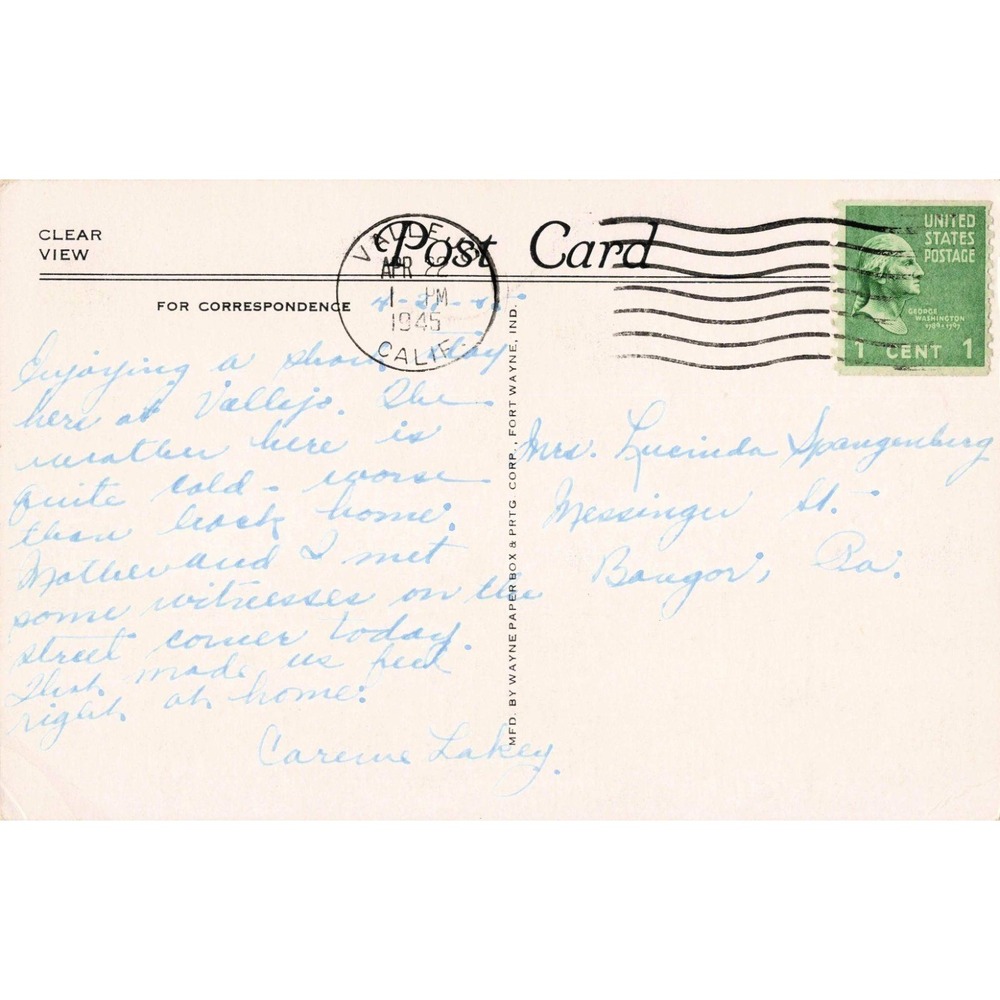 CLEAR
VIEW
Post Card
FOR CORRESPONDENCE
VALLEJO
APR 22
1 PM
1945
CALIF.
UNITED
STATES
POSTAGE
GEORGE
WASHINGTON
1789-1797
1 CENT 1
Enjoying a short stay
here at Vallejo. The
weather here is
quite cold - worse
than back home.
Mother and I met
some witnesses on the
street corner today.
That made us feel
right at home.
Lakey.
MFD. BY WAYNE PAPER BOX & PRTG CORP., FORT WAYNE, IND.
Mrs. Lucinda Spangenberg
Messinger St.
Bangor, Pa.